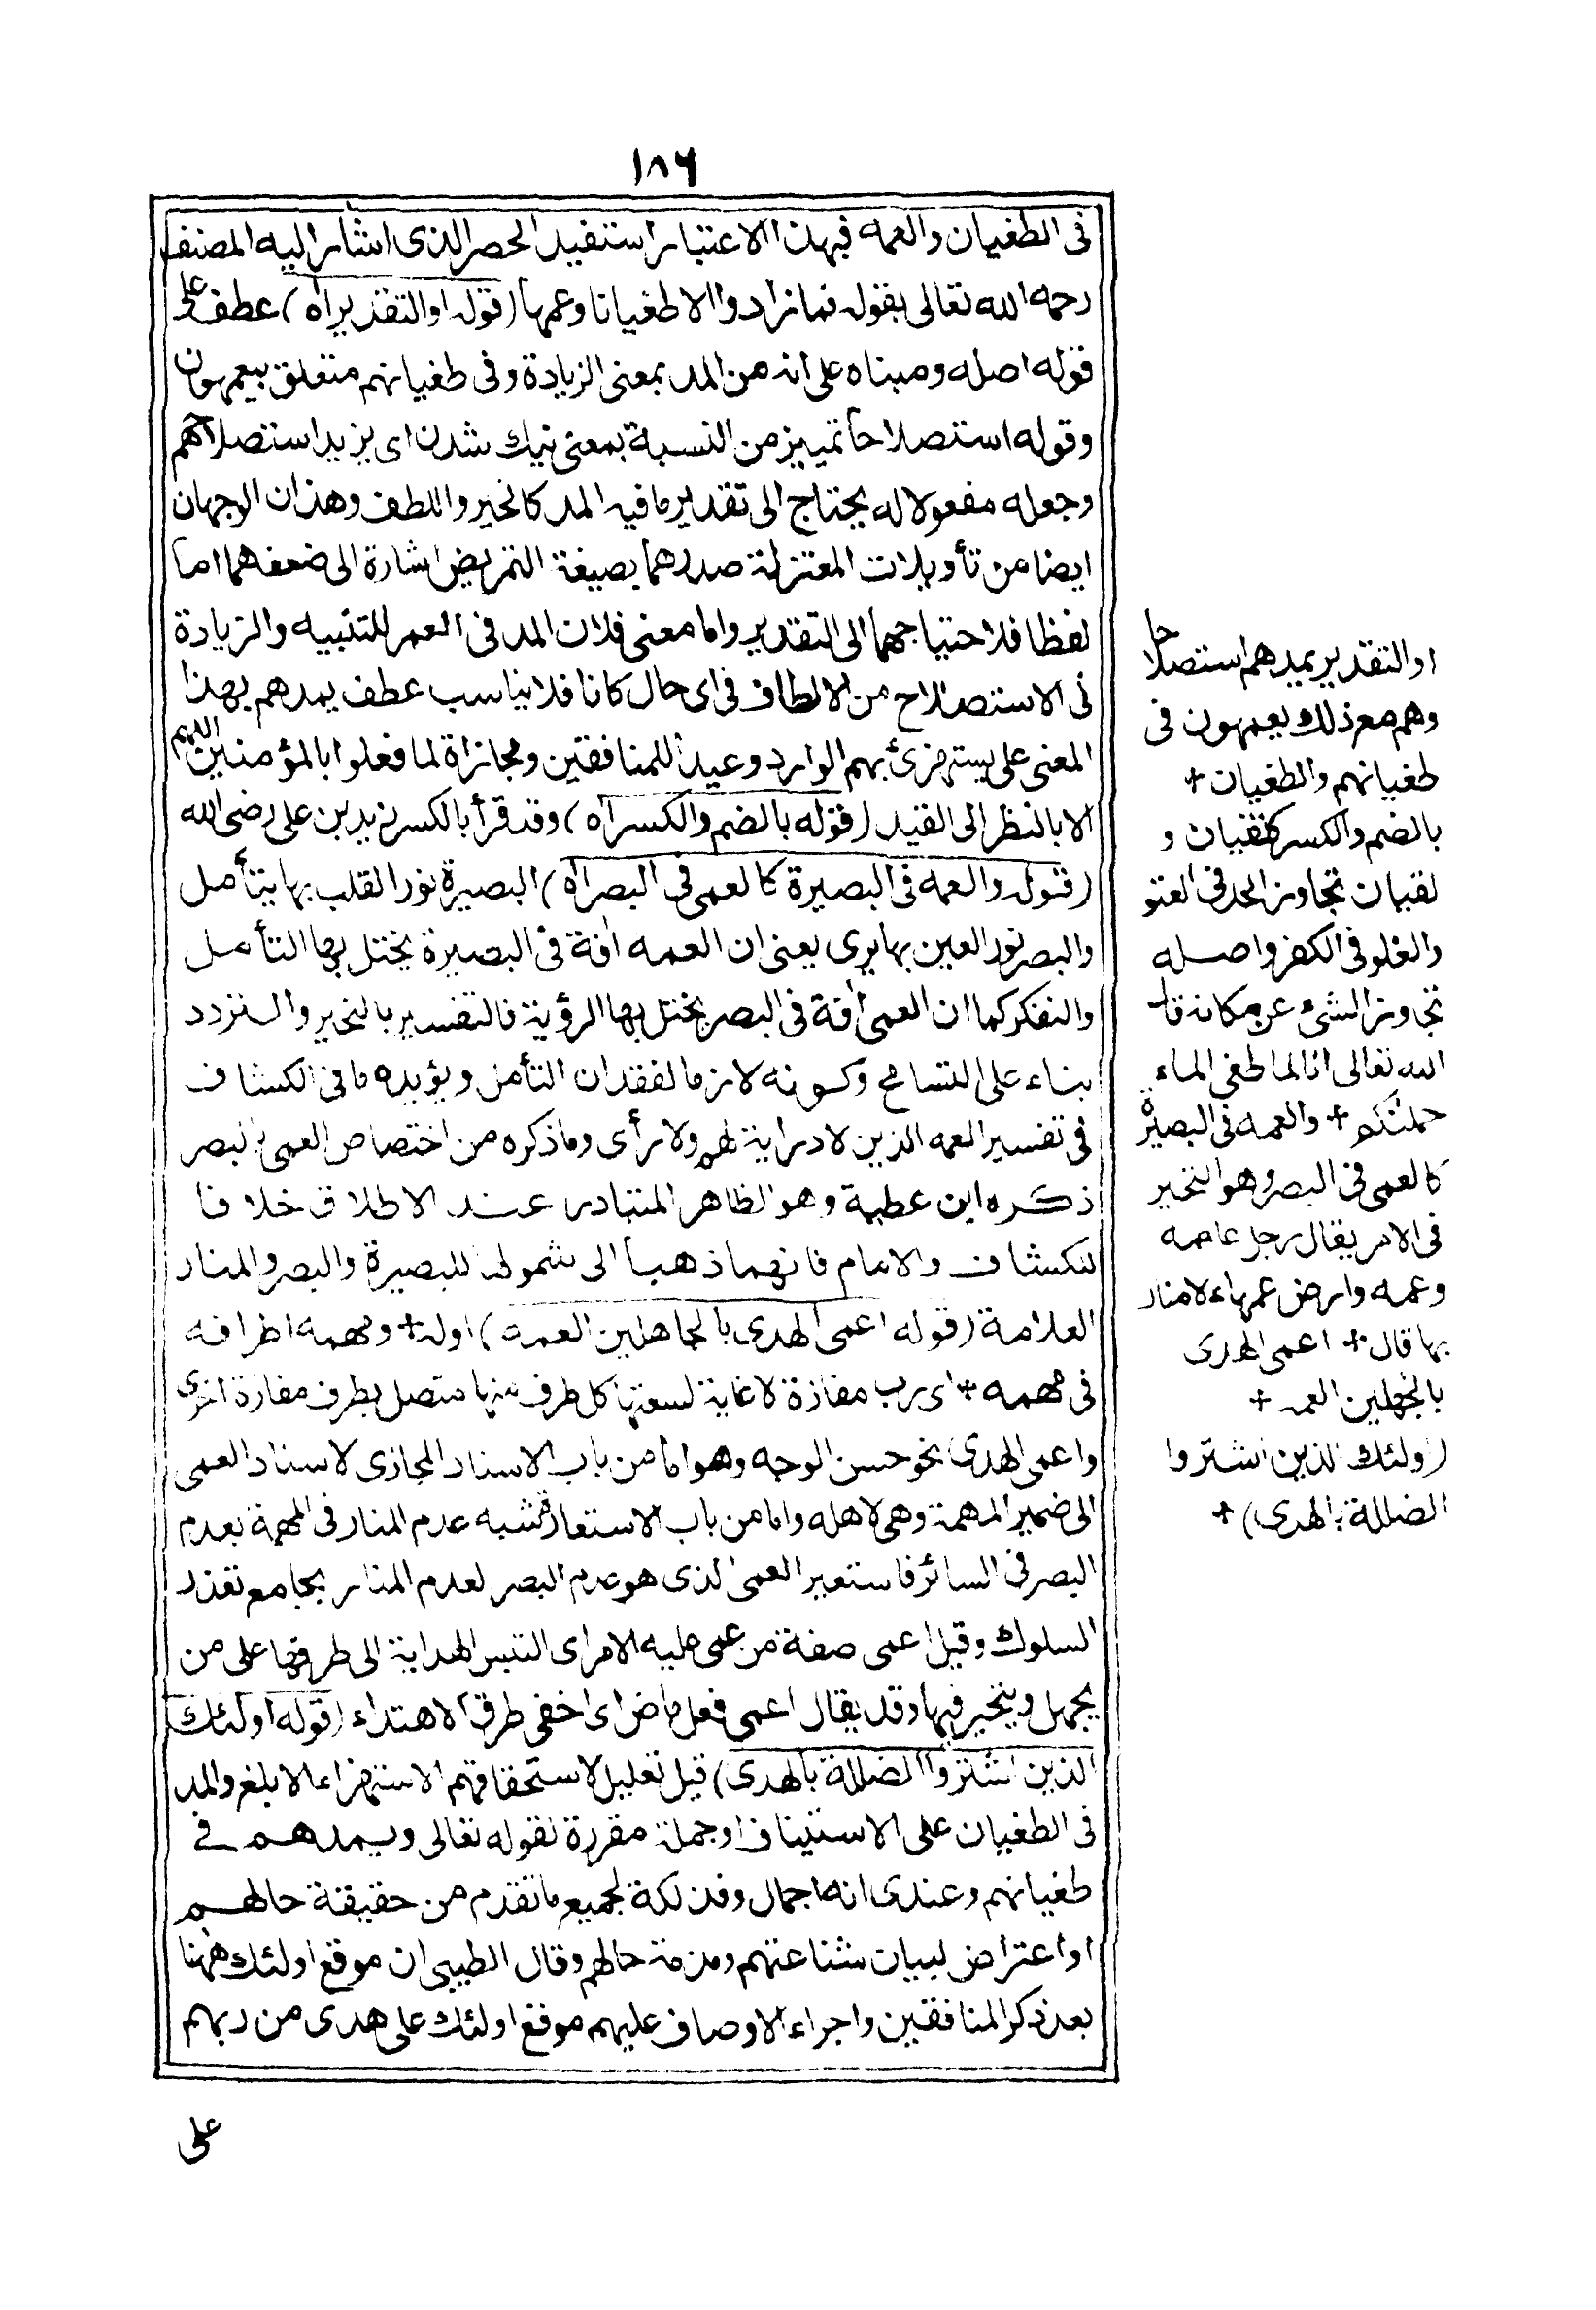 ١٨٦
فى الطغيان والعمه فبهذا الاعتبار استفيد الحصر الذى اشار اليه المصنف
رحمه الله تعالى بقوله فما زادوا الا طغيانا وعمها (قوله او التقدير اه) عطف على
قوله اصله ومبناه على انه من المد بمعنى الزيادة وفى طغيانهم متعلق بيعمهون
وقوله استصلاحا تمييز من النسبة بمعنى نيك شدن اى يزيد استصلاحهم
وجعله مفعولا له يحتاج الى تقدير ما فيه المد كالخير واللطف وهذان الوجهان
ايضا من تأويلات المعتزلة صدرهما بصيغة التمريض اشارة الى ضعفهما اما
لفظا فلاحتياجهما الى التقدير واما معنى فلان المد فى العمر للتنبيه والزيادة
فى الاستصلاح من الالطاف فى اى حال كانا فلا يناسب عطف يمدهم بهذا
المعنى على يستهزئ بهم الوارد وعيدا للمنافقين ومجازاة لما فعلوا بالمؤمنين اللهم
الا بالنظر الى القيد (قوله بالضم والكسر اه) وقد قرأ بالكسر زيد بن على رضى الله
(قوله والعمه فى البصيرة كالعمى فى البصر اه) البصيرة نور القلب بها يتأمل
والبصر نور العين بها يرى يعنى ان العمه افة فى البصيرة يختل بها التأمل
والتفكر كما ان العمى افة فى البصر يختل بها الرؤية فالتفسير بالتحير والتردد
بناء على التسامح وكونه لازما لفقدان التأمل ويؤيده ما فى الكشاف
فى تفسير العمه الذين لا دراية لهم ولا رأى وما ذكره من اختصاص العمى بالبصر
ذكره ابن عطية وهو الظاهر المتبادر عند الاطلاق خلافا
للكشاف والامام فانهما ذهبا الى شموله للبصيرة والبصر والمنار
العلامة (قوله اعمى الهدى بالجاهلين العمه) اوله + ومهمه اطرافه
فى مهمه + اى رب مفازة لا غاية لسعتها كل طرف منها متصل بطرف مفازة اخرى
واعمى الهدى نحو حسن الوجه وهو اما من باب الاسناد المجازى لاسناد العمى
الى ضمير المهمة وهى لاهله واما من باب الاستعارة شبه عدم المنار فى المهمة بعدم
البصر فى السائر فاستعير العمى الذى هو عدم البصر لعدم المنار بجامع تعذر
السلوك وقيل اعمى صفة من عمى عليه الامر اى التبس الهداية الى طرقها على من
يجهل ويتحير فيها وقد يقال اعمى فعل ماض اى اخفى طرق الاهتداء (قوله اولئك
الذين اشتروا الضللة بالهدى) قيل تعليل لاستحقاقهم الاستهزاء الابلغ والمد
فى الطغيان على الاستيناف او جملة مقررة لقوله تعالى ويمدهم فى
طغيانهم وعندى انه اجمال وفذلكة لجميع ما تقدم من حقيقة حالهم
او اعتراض لبيان شناعتهم ومذمة حالهم وقال الطيبى ان موقع اولئك ههنا
بعد ذكر المنافقين واجراء الاوصاف عليهم موقع اولئك على هدى من ربهم
على
او التقدير يمدهم استصلاحا
وهم مع ذلك يعمهون فى
طغيانهم والطغيان +
بالضم والكسر كلقيان و
لقيان تجاوز الحد فى العتو
والغلو فى الكفر واصله
تجاوز الشئ عن مكانه قال
الله تعالى انا لما طغى الماء
حملنكم + والعمه فى البصيرة
كالعمى فى البصر وهو التحير
فى الامر يقال رجل عامه
وعمه وارض عمهاء لا منار
بها قال + اعمى الهدى
بالجهلين العمه +
(اولئك الذين اشتروا
الضللة بالهدى) +